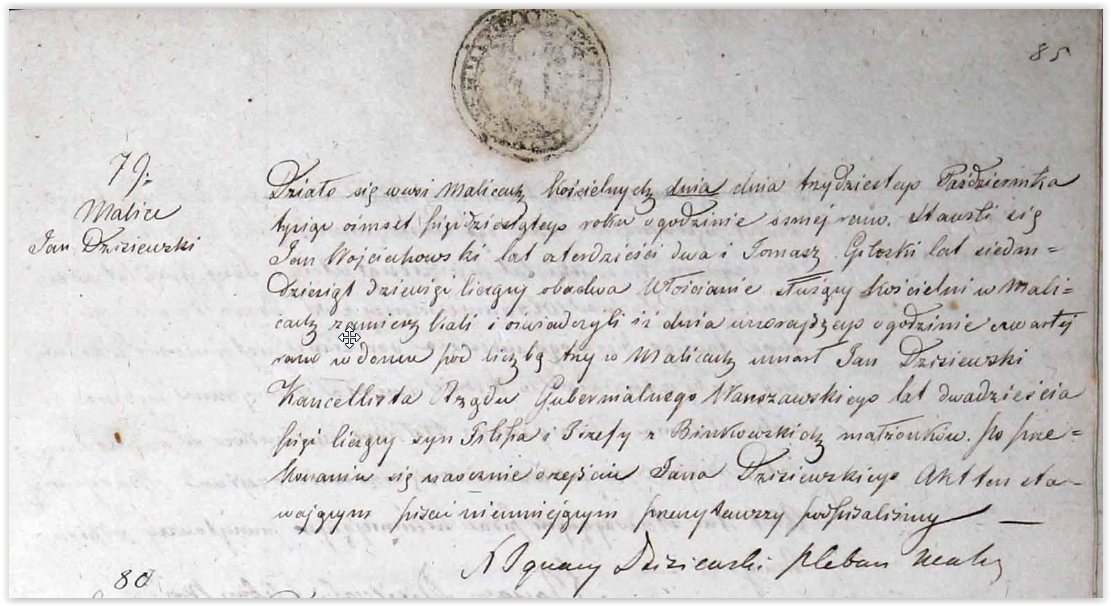 85
79.
Malice
Jan Dziziewski
Działo się w wsi Malicach kościelnych dnia dnia trzydziestego Pazdziernika
tysiąc ośmset pięćdziesiątego roku o godzinie osmej rano. Stawili się
Jan Wojciechowski lat czterdzieści dwa i Tomasz lat siedm-
dziesiąt dziewięć liczący obadwa Włościanie słuzący kościelni w Mali-
cach zamieszkali i oswiadczyli iż dnia wczorajszego o godzinie czwartej
rano w domu pod liczbą trzy w Malicach umarł Jan Dziziewski
Kancellista Rządu Gubernialnego Warszawskiego lat dwadzieścia
pięć liczący syn Filipa i Jozefy z Binkowskich małżonków. Po prze-
konaniu się naocznie o zejściu Jana Dziziewskiego Akt ten sta-
wającym pisać nieumiejącym przeczytawszy podpisaliśmy —
X Ignacy Dziziewski pleban
80